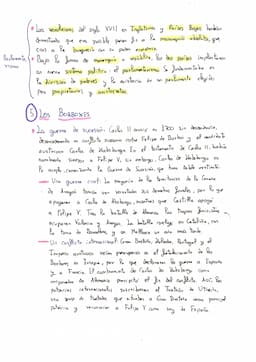 Parlamentarismo
• Las revoluciones del siglo XVII en Inglaterra y Países Bajos también
demostraron que era posible poner fin a la monarquía absoluta, que
cedió a la burguesía en su poder económico.
• Bajo la forma de monarquía o república, los dos países implantaron
un nuevo sistema político: el parlamentarismo. Se fundamentaba en
la división de poderes y la existencia de un parlamento elegido
por propietarios y aristócratas.
⑤ Los Borbones
• La guerra de sucesión: Carlos II murió en 1700 sin descendencia,
desencadenando un conflicto sucesorio entre Felipe de Borbón y el candidato
austriaco Carlos de Habsburgo. En el testamento de Carlos II, había
nombrado sucesor a Felipe V, sin embargo, Carlos de Habsburgo no
lo aceptó, comenzando la Guerra de Sucesión, que tuvo doble vertiente:
— Una guerra civil: La mayoría de los territorios de la Corona
de Aragón temían ver recortados sus derechos forales, por lo que
apoyaron a Carlos de Habsburgo, mientras que Castilla apoyó
a Felipe V. Tras la batalla de Almansa, las tropas
ocuparon Valencia y Aragón. La batalla continuó en Cataluña, con
la toma de Barcelona, y en Mallorca un año más tarde.
— Un conflicto internacional: Gran Bretaña, Holanda, Portugal y el
Imperio austriaco veían peligroso el fortalecimiento de los
Borbones en Europa, por lo que declararon la guerra a España
y a Francia. El nombramiento de Carlos de Habsburgo como
emperador de Alemania precipitó el fin del conflicto. Así, las
potencias internacionales suscribieron el Tratado de Utrecht,
una serie de tratados que situaban a Gran Bretaña como principal
potencia y reconocían a Felipe V como rey de España.